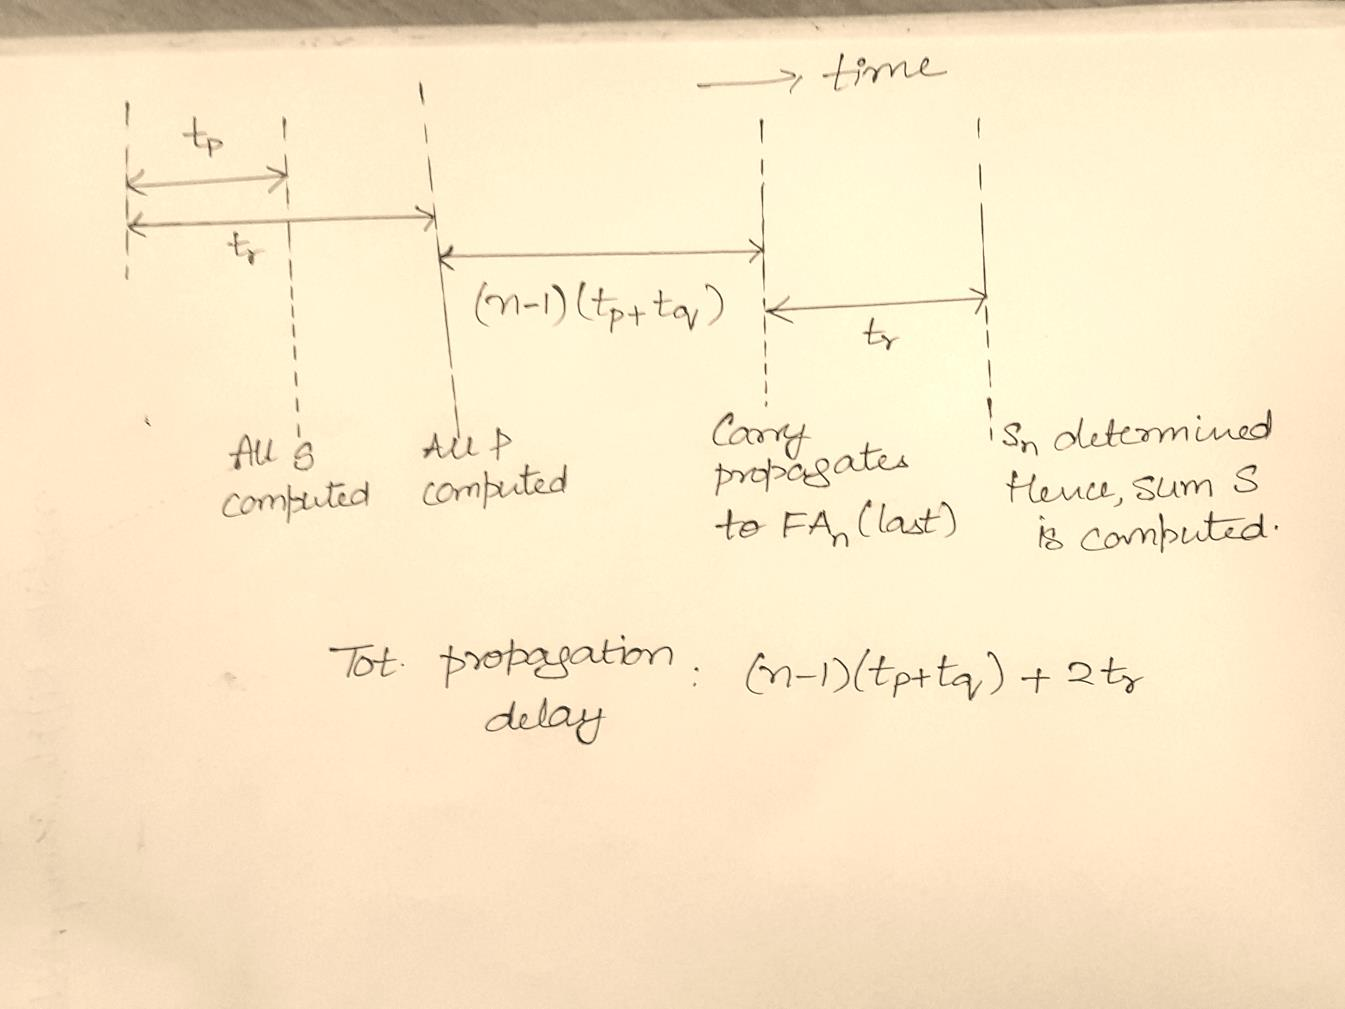 → time
tp
tr
(n-1)(tp+tq)
tr
All g
computed
All p
computed
Carry
propagates
to FAn (last)
Sn determined
Hence, sum S
is computed.
Tot. propagation : (n-1)(tp+tq) + 2tr
delay